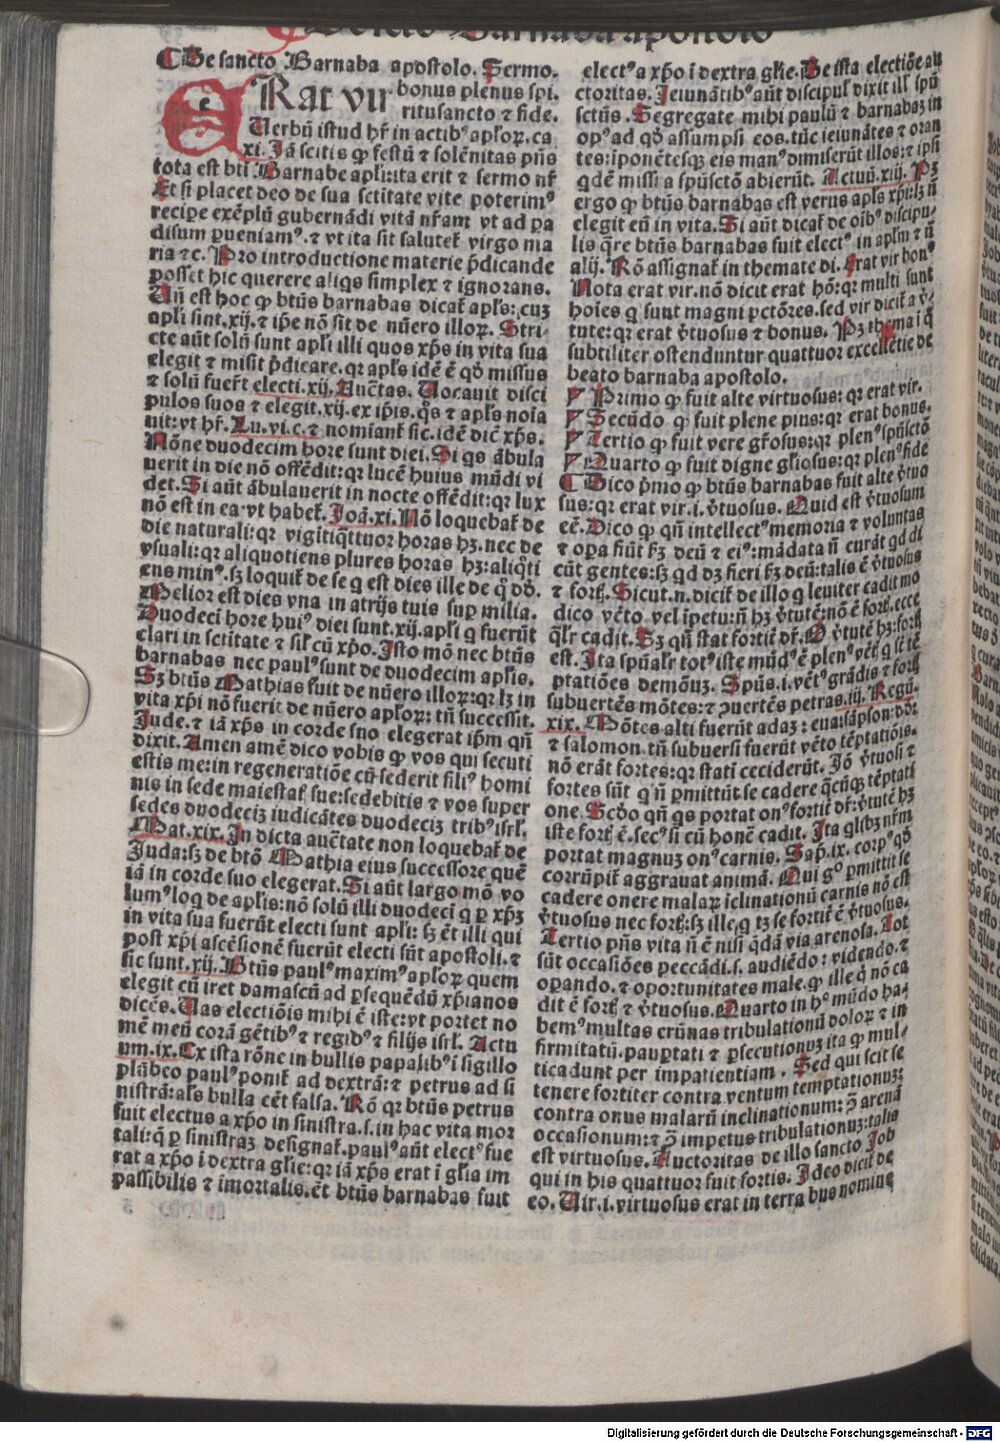 De sancto Barnaba apostolo
¶ De sancto Barnaba apostolo. Sermo.
ERat vir bonus plenus spi-
ritusancto ⁊ fide.
Uerbū istud hr̄ in actibꝰ apl'oꝝ. ca
xi. Jā scitis ꝙ festū ⁊ solēnitas pn̄s
tota est bt̄i Barnabe apl'i: ita erit ⁊ sermo nr̄
Et si placet deo de sua sctītate vite poterimꝰ
recipe exēplū gubernādi vitā nr̄am vt ad pa
disum ꝑueniamꝰ. ⁊ vt ita sit salutet᷑ virgo ma
ria ⁊c. Pro introductione materie p̄dicande
posset hic querere aliqs simplex ⁊ ignorans.
Uñ est hoc ꝙ btūs barnabas dicat᷑ apl's: cuꝫ
apl'i sint .xij. ⁊ ip̄e nō sit de nūero illoꝝ. Stri-
cte aūt solū sunt apl'i illi quos xp̄s in vita sua
elegit ⁊ misit p̄dicare. qꝛ apl's idē ē qd̄ missus
⁊ solū fuer̄t electi .xij. Auctas. Uocauit disci
pulos suos ⁊ elegit .xij. ex ip̄is. q̄s ⁊ apl's noīa
uit: vt hr̄. Lu. vi. c. ⁊ nomiant᷑ sic. idē dic̄ xp̄s.
Nōne duodecim hore sunt diei. Si qs ābula
uerit in die nō offēdit: qꝛ lucē huius mūdi vi
det. Si aūt ābulauerit in nocte offēdit: qꝛ lux
nō est in ea. vt habet᷑. Joā. xi. Nō loquebat᷑ de
die naturali: qꝛ vigitiq̄ttuor horas hꝫ. nec de
vsuali: qꝛ aliquotiens plures horas hꝫ: aliq̄ti
ens minꝰ. sꝫ loquit᷑ de se q est dies ille de q̄ dd̄.
Melior est dies vna in atrijs tuis suꝑ milia.
Duodeci hore huiꝰ diei sunt .xij. apl'i q fuerūt
clari in sctītate ⁊ sil' cū xp̄o. Isto mō nec btūs
barnabas nec paulꝰ sunt de duodecim apl'is.
Sꝫ btūs Mathias fuit de nūero illoꝝ: qꝛ lꝫ in
vita xp̄i nō fuerit de nūero apl'oꝝ: tn̄ successit.
Jude. ⁊ iā xp̄s in corde suo elegerat ip̄m qn̄
dixit. Amen amē dico vobis ꝙ vos qui secuti
estis me: in regeneratiōe cū sederit filiꝰ homi
nis in sede maiestat᷑ sue: sedebitis ⁊ vos super
sedes duodeciꝫ iudicātes duodeciꝫ tribꝰ isrl'.
Mat. xix. In dicta auctate non loquebat᷑ de
Juda: sꝫ de btō Mathia eius successore quē
iā in corde suo elegerat. Si aūt largo mō vo
lumꝰ loq de apl'is: nō solū illi duodeci q ꝑ xp̄ꝫ
in vita sua fuerūt electi sunt apl'i: sꝫ ēt illi qui
post xp̄i ascēsionē fuerūt electi sūt apostoli. ⁊
sic sunt .xij. Btūs paulꝰ maximꝰ apl'oꝝ quem
elegit cū iret damascū ad ꝑsequēdū xp̄ianos
dicēs. Uas electiōis mihi ē iste: vt portet no
mē meū corā gētibꝰ ⁊ regibꝰ ⁊ filijs isrl'. Actu
um. ix. Ex ista rōne in bullis papalibꝰ i sigillo
plūbeo paulꝰ ponit᷑ ad dextrā: ⁊ petrus ad si
nistrā: al's bulla cēt falsa. Rō qꝛ btūs petrus
fuit electus a xp̄o in sinistra. s. in hac vita mor
tali: q̄ ꝑ sinistraꝫ designat᷑. paulꝰ aūt electꝰ fue
rat a xp̄o ī dextra gl'ie: qꝛ iā xp̄s erat ī gl'ia im
passibilis ⁊ īmortalis. ēt btūs barnabas fuit
electꝰ a xp̄o i dextra gl'ie. De ista electiōe au
ctoritas. Jeiunātibꝰ aūt discipul' dixit ill' spū
sctūs. Segregate mihi paulū ⁊ barnabaꝫ in
opꝰ ad qd̄ assumpsi eos. tūc ieiunātes ⁊ oran
tes: iponētesqꝫ eis manꝰ dimiserūt illos: ⁊ ipsi
qdē missi a spūsctō abierūt. Actuū. xiij. Pꝫ
ergo ꝙ btūs barnabas est verus apl's xp̄i: lꝫ n̄
elegit eū in vita. Si aūt dicat᷑ de oībꝰ discipu-
lis q̄re btūs barnabas fuit electꝰ in apl'm ⁊ n̄
alij. Rō assignat᷑ in themate di. Erat vir bonꝰ
Nota erat vir. nō dicit erat hō: qꝛ multi sunt
hoīes q sunt magni pctōres. sed vir dicit᷑ a v̄-
tute: qꝛ erat v̄tuosus ⁊ bonus. Pꝫ thema i q̄
subtiliter ostenduntur quattuor excellētie de
beato barnaba apostolo.
Primo ꝙ fuit alte virtuosus: qꝛ erat vir.
Secūdo ꝙ fuit plene pius: qꝛ erat bonus.
Tertio ꝙ fuit vere gr̄osus: qꝛ plenꝰ spūsctō
Quarto ꝙ fuit digne gl'iosus: qꝛ plenꝰ fide
¶ Dico p̄mo ꝙ btūs barnabas fuit alte v̄tuo
sus: qꝛ erat vir. i. v̄tuosus. Quid est v̄tuosum
eē. Dico ꝙ qn̄ intellectꝰ memoria ⁊ voluntas
⁊ oꝑa fiūt ẜꝫ deū ⁊ eiꝰ: mādata n̄ curāt qd di
cūt gentes: sꝫ qd dꝫ fieri ẜꝫ deū: talis ē v̄tuosus
⁊ fort᷑. Sicut. n. dicit᷑ de illo q leuiter cadit mo
dico vēto vel ipetu: n̄ hꝫ v̄tutē: nō ē fort᷑. ecce
ql'r cadit. Sꝫ qn̄ stat fortit᷑ dr̄. O v̄tutē hꝫ: fort᷑
est. Ita spūal'r totꝰ iste mūdꝰ ē plenꝰ vēt᷑ q st tē
ptatiōes demōuꝫ. Spūs. i. vētꝰ grādis ⁊ fort᷑
subuertēs mōtes: ⁊ ꝯuertēs petras. iij. Regū.
xix. Mōtes alti fuerūt adaꝫ: eua: sāpson: dd̄:
⁊ salomon. tn̄ subuersi fuerūt vēto tēptatiōis.
nō erāt fortes: qꝛ stati ceciderūt. Jō v̄tuosi ⁊
fortes sūt q n̄ ꝑmittūt se cadere q̄cūqꝫ tēptati
one. Scdo qn̄ qs portat onꝰ fortit᷑ dr̄: v̄tutē hꝫ
iste fort᷑ ē. secꝰ si cū honē cadit. Ita qlibꝫ nr̄m
portat magnuꝫ onꝰ carnis. Sap. ix. corpꝰ qd̄
corrūpit᷑ aggrauat animā. Qui gͦ ꝑmittit se
cadere onere malaꝝ iclinationū carnis nō est
v̄tuosus nec fort᷑: sꝫ ille q tꝫ se fortit᷑ ē v̄tuosus.
Tertio pn̄s vita n̄ ē nisi q̄dā via arenosa. Tot
sūt occasiōes peccādi. s. audiēdo: videndo. ⁊
oꝑando. ⁊ oportunitates male. ꝙ ille q nō ca
dit ē fort᷑ ⁊ v̄tuosus. Quarto in hꝰ mūdo ha-
bemꝰ multas erūnas tribulationū doloꝝ ⁊ in
firmitatū. pauꝑtati ⁊ ꝑsecutionuꝫ ita ꝙ mul-
ti cadunt per impatientiam. Sed qui scit se
tenere fortiter contra ventum temptationuꝫ:
contra onus malarū inclinationum: ꝯ̄ arenā
occasionum: ⁊ ꝯ̄ impetus tribulationuꝫ: talis
est virtuosus. Auctoritas de illo sancto Job
qui in his quattuor fuit fortis. Ideo dicit᷑ de
eo. Uir. i. virtuosus erat in terra hus nomine
Digitalisierung gefördert durch die Deutsche Forschungsgemeinschaft - DFG